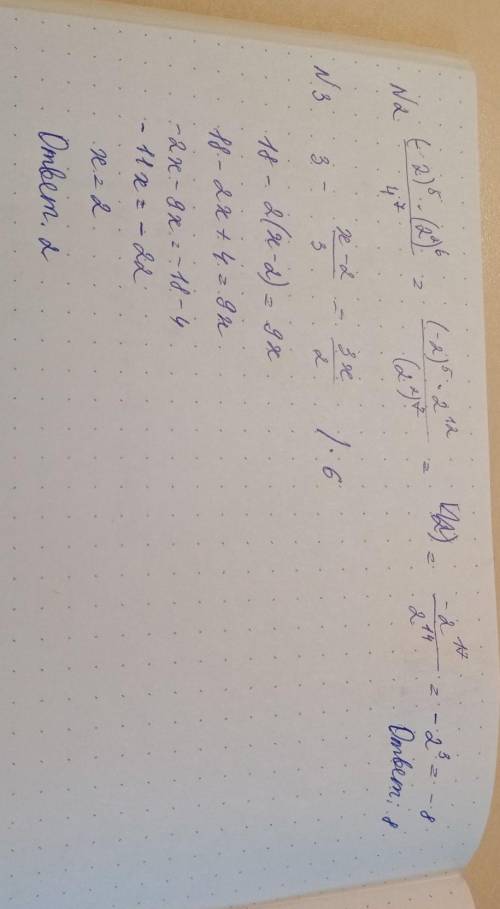 N2 (-2)⁵ · (2²)⁶ / 4⁷ = (-2)⁵ · 2¹² / (2²)⁷ = = -2¹⁷ / 2¹⁴ = -2³ = -8
Ответ: 8
N3 3 - (x-2)/3 = 3x/2 | · 6
18 - 2(x-2) = 9x
18 - 2x + 4 = 9x
-2x - 9x = -18 - 4
-11x = -22
x = 2
Ответ: 2